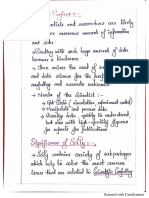 Preface :-
Scientists and researchers are likely
enormous amount of information
and data.
→ Dealing with such large amount of data
become a hindrance
→ Then arises the need of
and data science for the
computing and
conclusions.
→ Needs of the Scientist :-
→ Get data (simulation, experiment)
→ Manipulate and process data
→ Visualize data, quickly to understand,
but also with high-quality figures
for reports or publications
Significance of SciPy :-
→ SciPy contains variety of sub packages
which help to solve the most common
issues that are related to Scientific Computing
Scanned with CamScanner